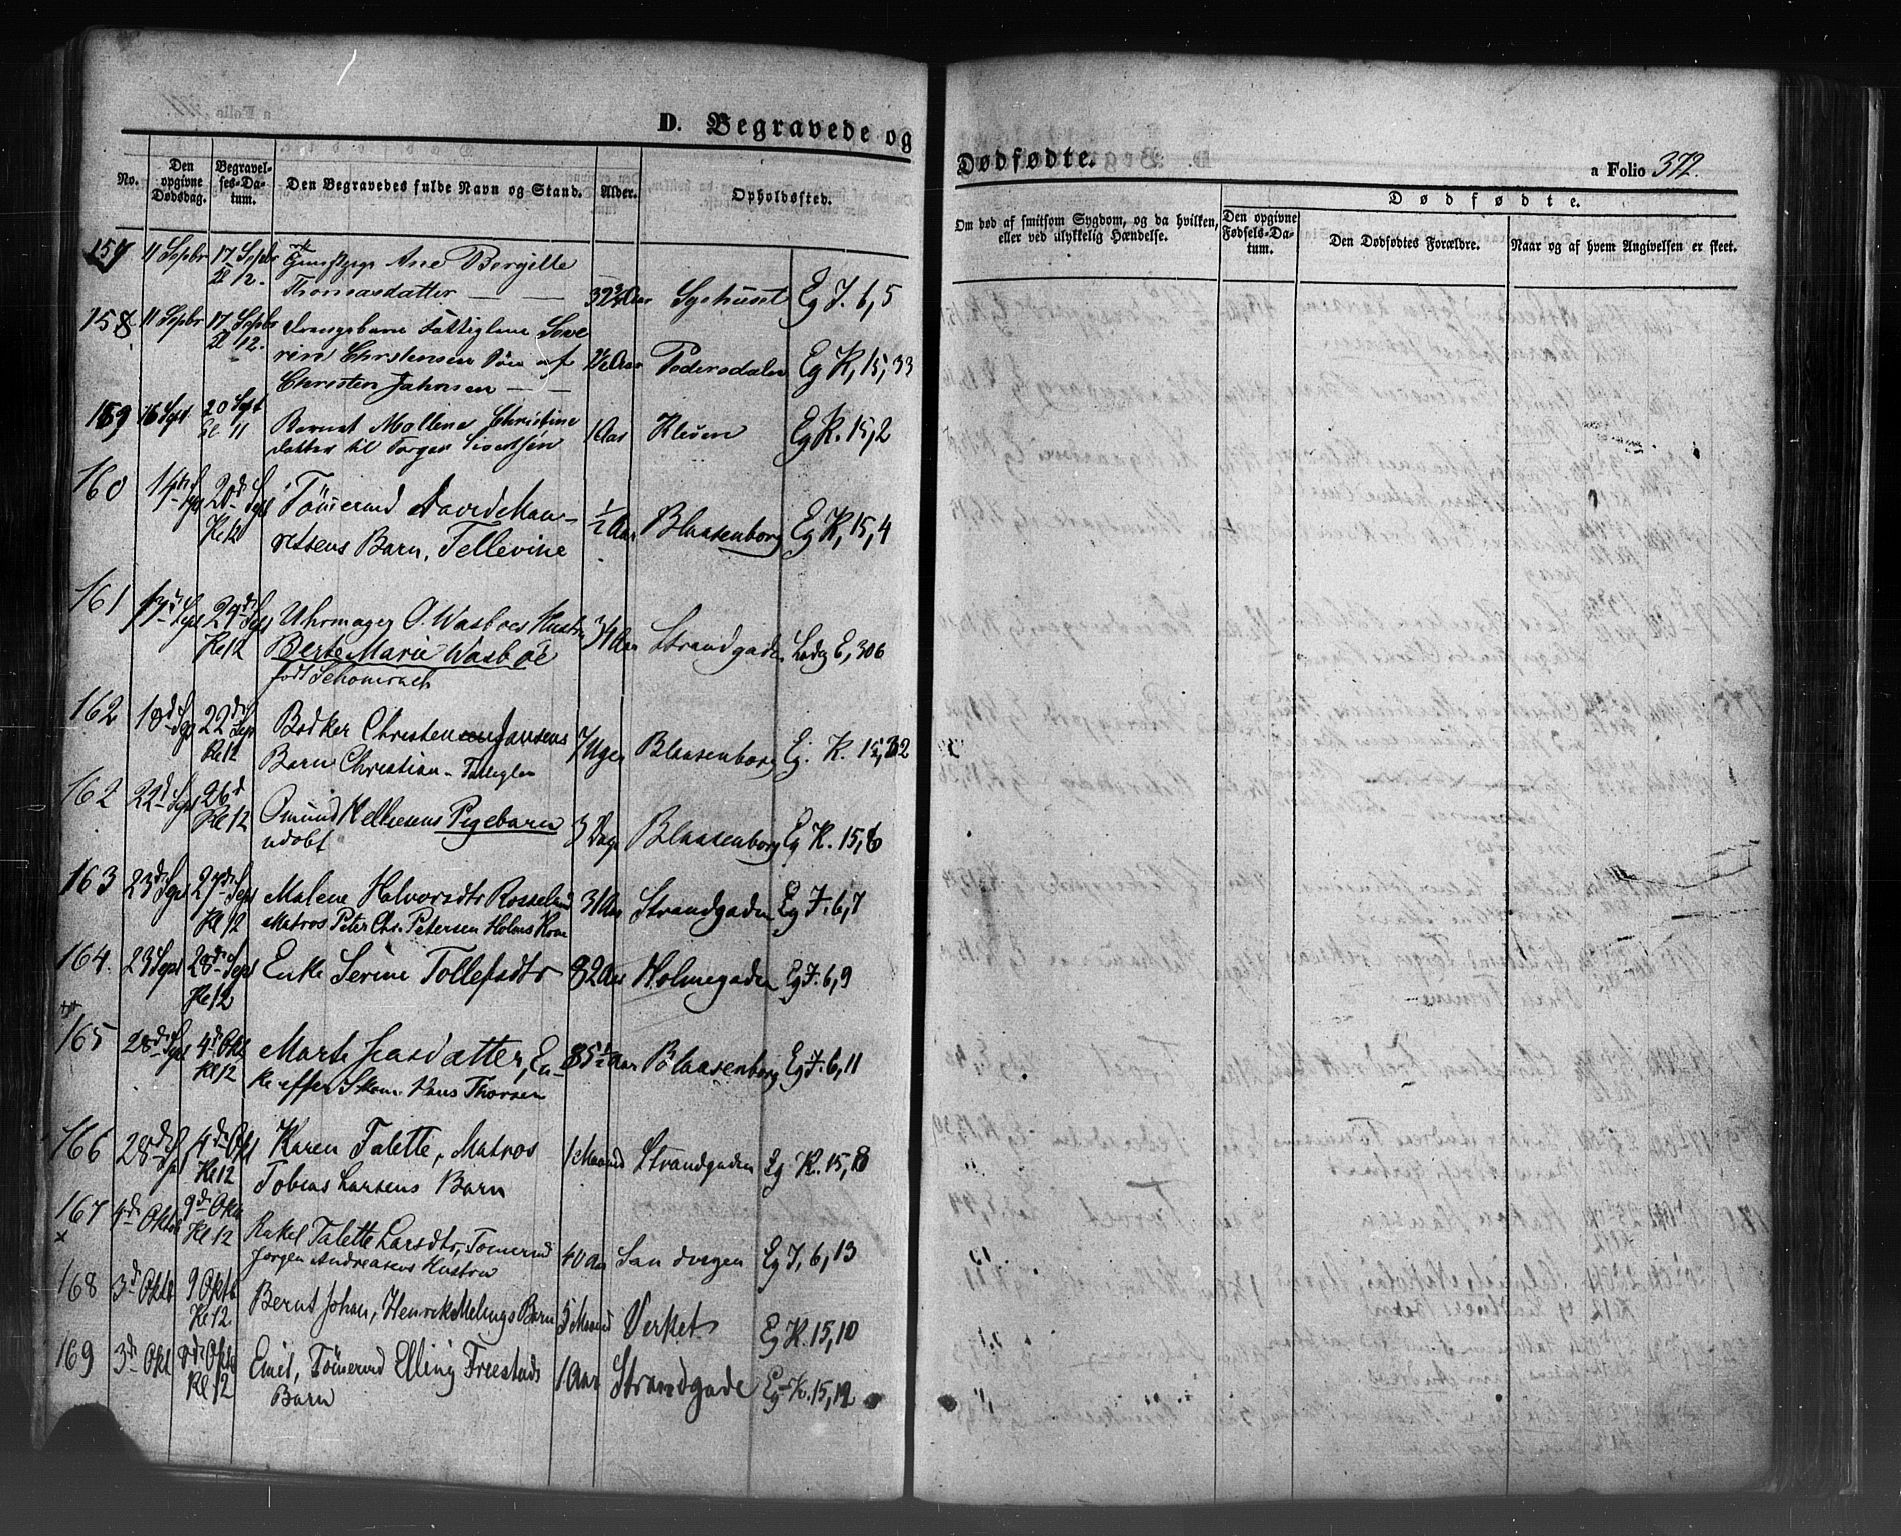 D. Begravede og
No.
Den opgivne Dødsdag.
Begravelses-Datum.
Den Begravedes fulde Navn og Stand.
Alder.
Opholdssted.
157 11 Sepbr 17 Sepbr Kl 12. Ane Bergitte
Thomasdatter — — 32 3/4 Aar Sygehuset Eg J. 6, 5
158 11 Sepbr 17 Sepbr Kl 12. Drengebarn Fattiglem Seve
rin Christensen Søn af 2 1/2 Aar Pedersdalen Eg K, 15, 33
Christen Jahnsen — —
159 16 Sept 20 Sept Kl 11 Barnet Malline Christine
datter til Torger Sivertsen 1 Aar Kleven Eg K. 15, 2
160 14de Sept 20de Sept Kl 12 Tømermd David Mau-
ritsens Barn, Tellevine 1/2 Aar Blaasenborg Eg K, 15, 4
161 17de Sept 29de Sept Kl 12 Uhrmager O. Wasboes Hustru
Berte Marie Wasbøe 34 Aar Strandgaden Ladeg E, 306
født Schomrach
162 18de Sep 22de Sep Kl 12 Bødker Christen Jansens
Barn Christian 7 Uger Blaasenborg Eg. K. 15, 32
162 22de Sept 26d Kl 12 Omund Kelliesens Pigebarn
udøbt 3 Dage Blaasenborg Eg K. 15, 6
163 23de Sept 27de Sept Kl 12 Malene Halvorsdtr Rosseland
Matros Peter Chr. Petersen Holms Kone 31 Aar Strandgaden Eg J. 6, 7
164. 23 Sept 28de Sept Kl 12 Enke Serine Tollefsdtr 82 Aar Holmegaden Eg J. 6, 9
165 28de Sept 4d Okt Kl 12 Marte Jeasdatter, En-
ke efter Skom. Hans Thorsen 85 1/2 Aar Blaasenborg Eg J. 6, 11
166 28de Sept 4de Okt Kl 12 Karen Talette, Matros
Tobias Larsens Barn 1 Maaned Strandgaden Eg K. 15, 8
167 4de Oktob 9de Okt Kl 12 Rakel Talette Larsdtr, Tømermd
x Jørgen Andreasens Hustru 40 Aar Sandvigen Eg J, 6, 13
168 3d Oktb 9 Oktb Kl 12 Bernt Johan, Henrik Melings Barn 5 Maaned Verket Eg K. 15, 10
169 3d Okt Okt Kl 12 Emil, Tømermd Elling Freestads
Barn 1 Aar Strandgade Eg K. 15, 12
Dødfødte.
a Folio 372.
Om død af smitsom Sygdom, og da hvilken, eller ved ulykkelig Hændelse.
Dødfødte.
Den opgivne Fødsels-Datum.
Den Dødfødtes Forældre.
Naar og af hvem Angivelsen er skeet.